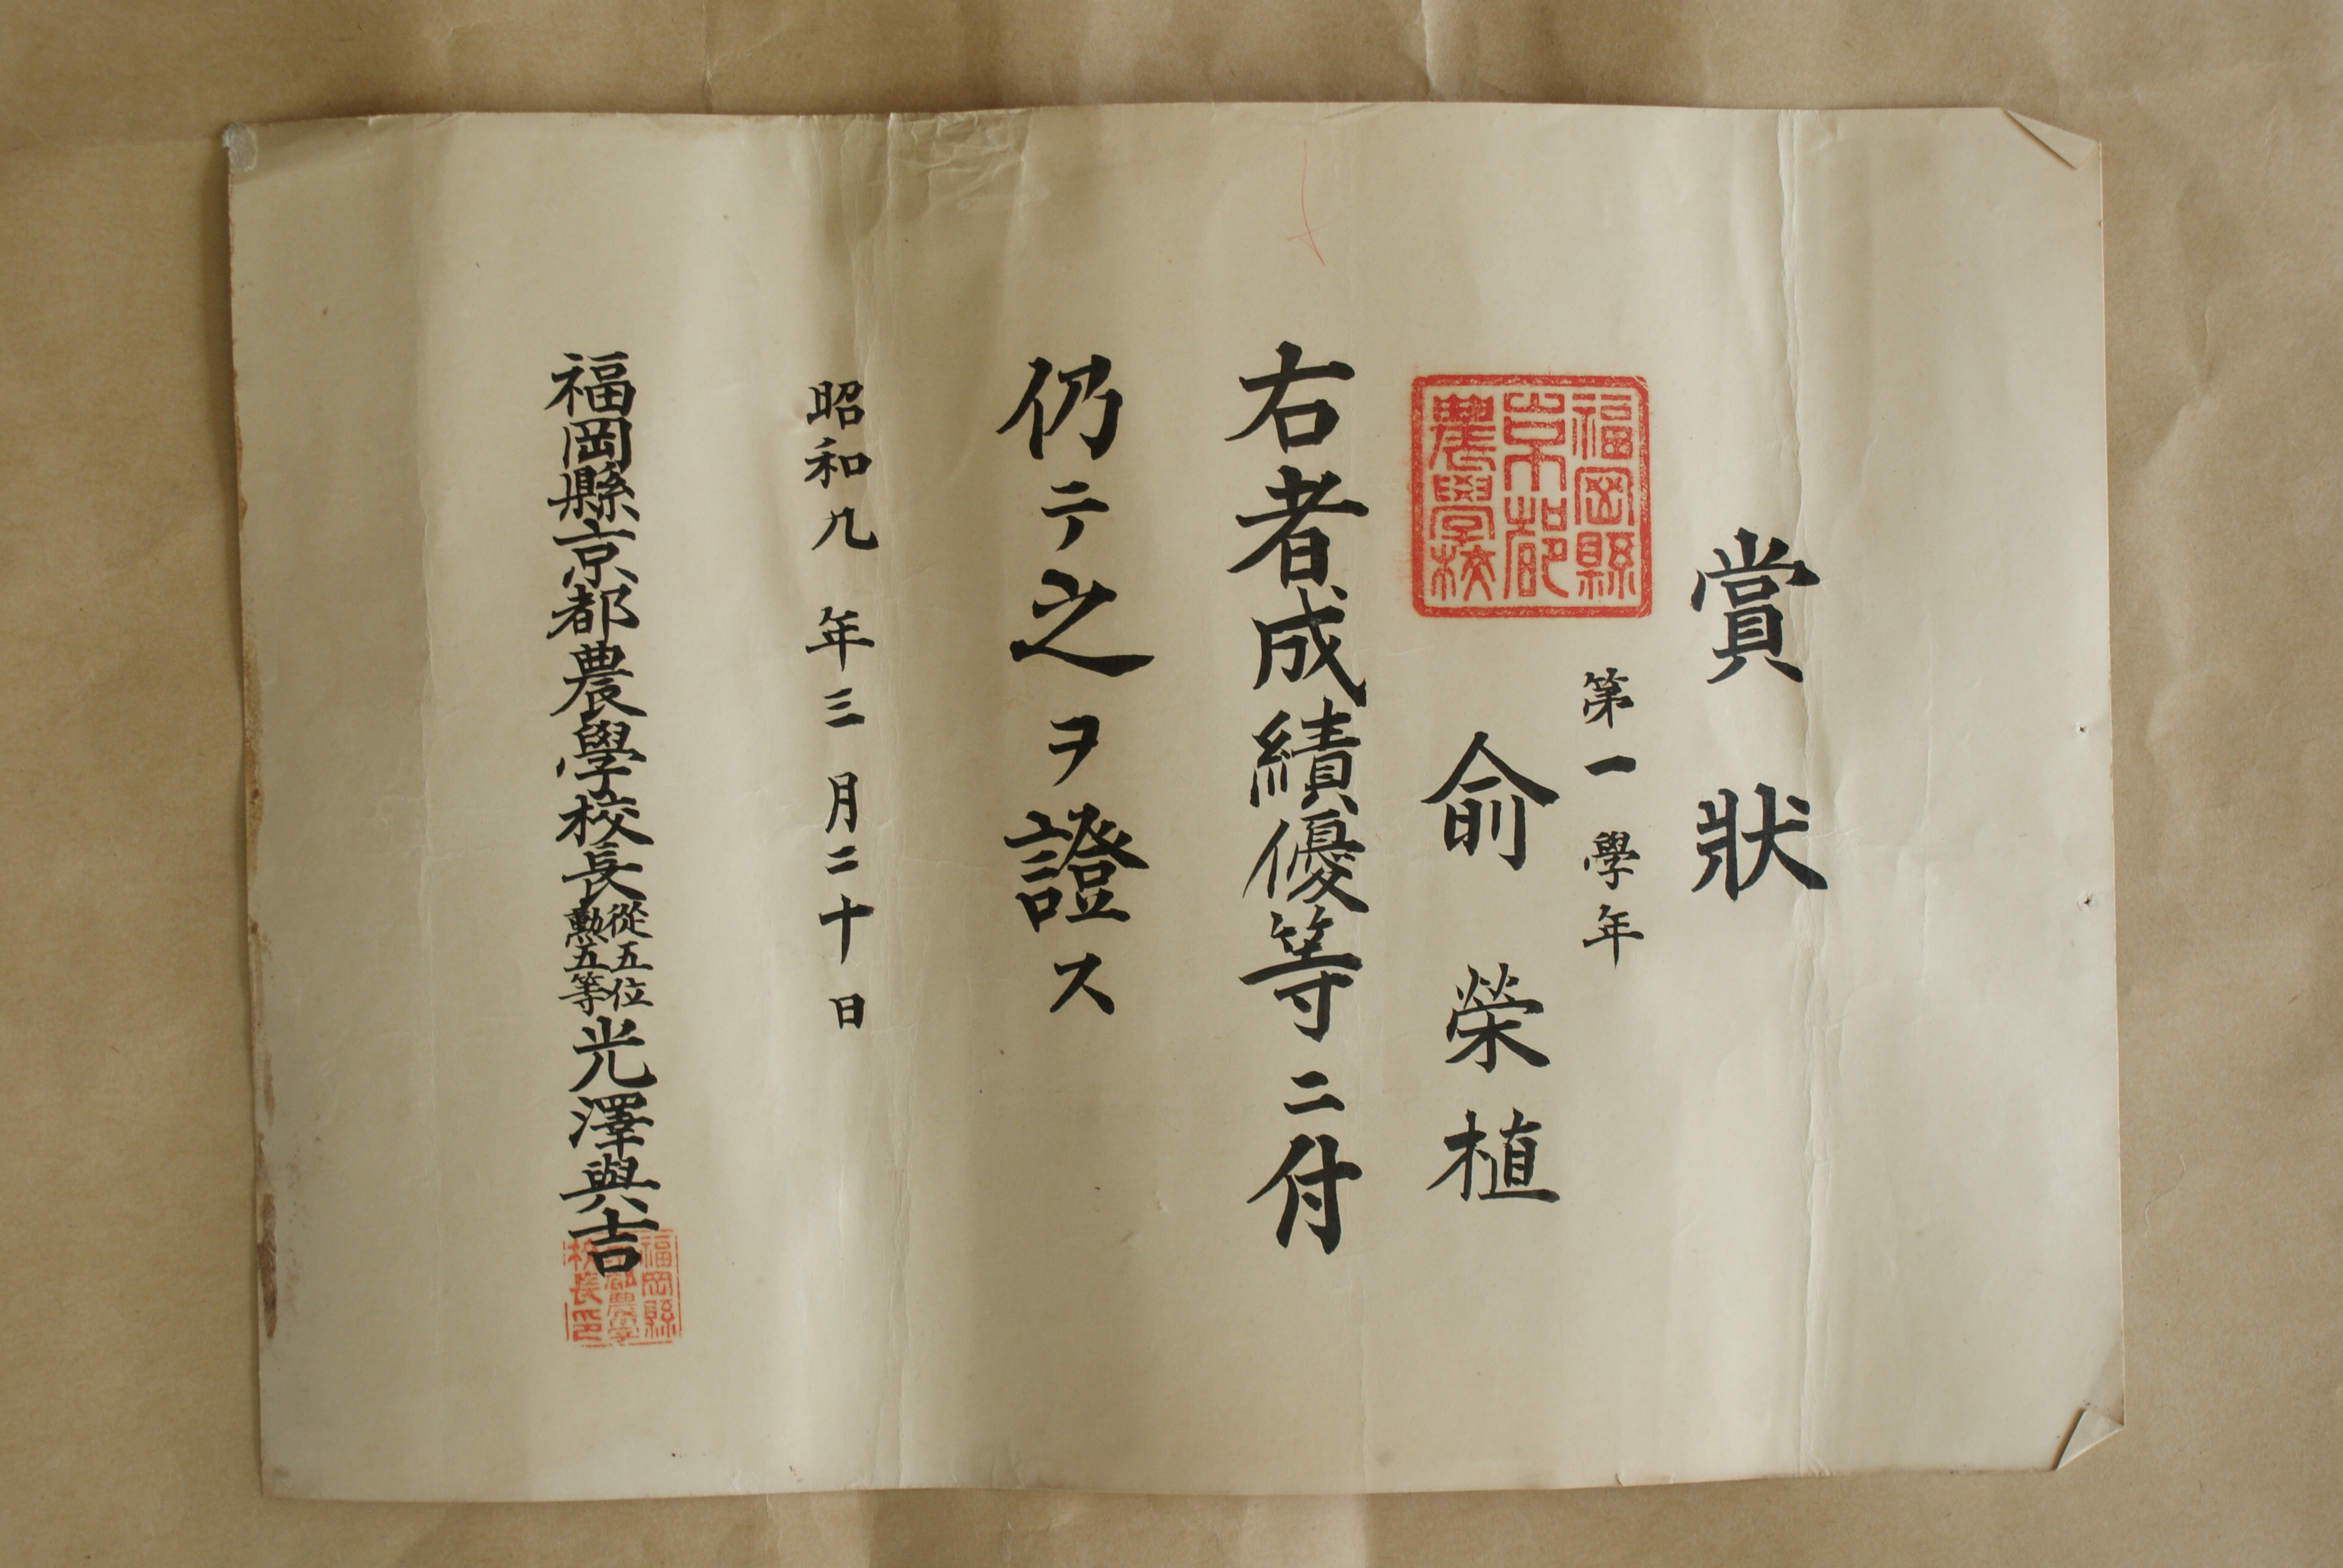 賞狀
第一學年
俞榮植
福岡縣
京都
農學校
右者成績優等ニ付
仍テ之ヲ證ス
昭和九年三月二十日
福岡縣京都農學校長從五位勲五等光澤與吉
福岡縣
京都農學
校長印